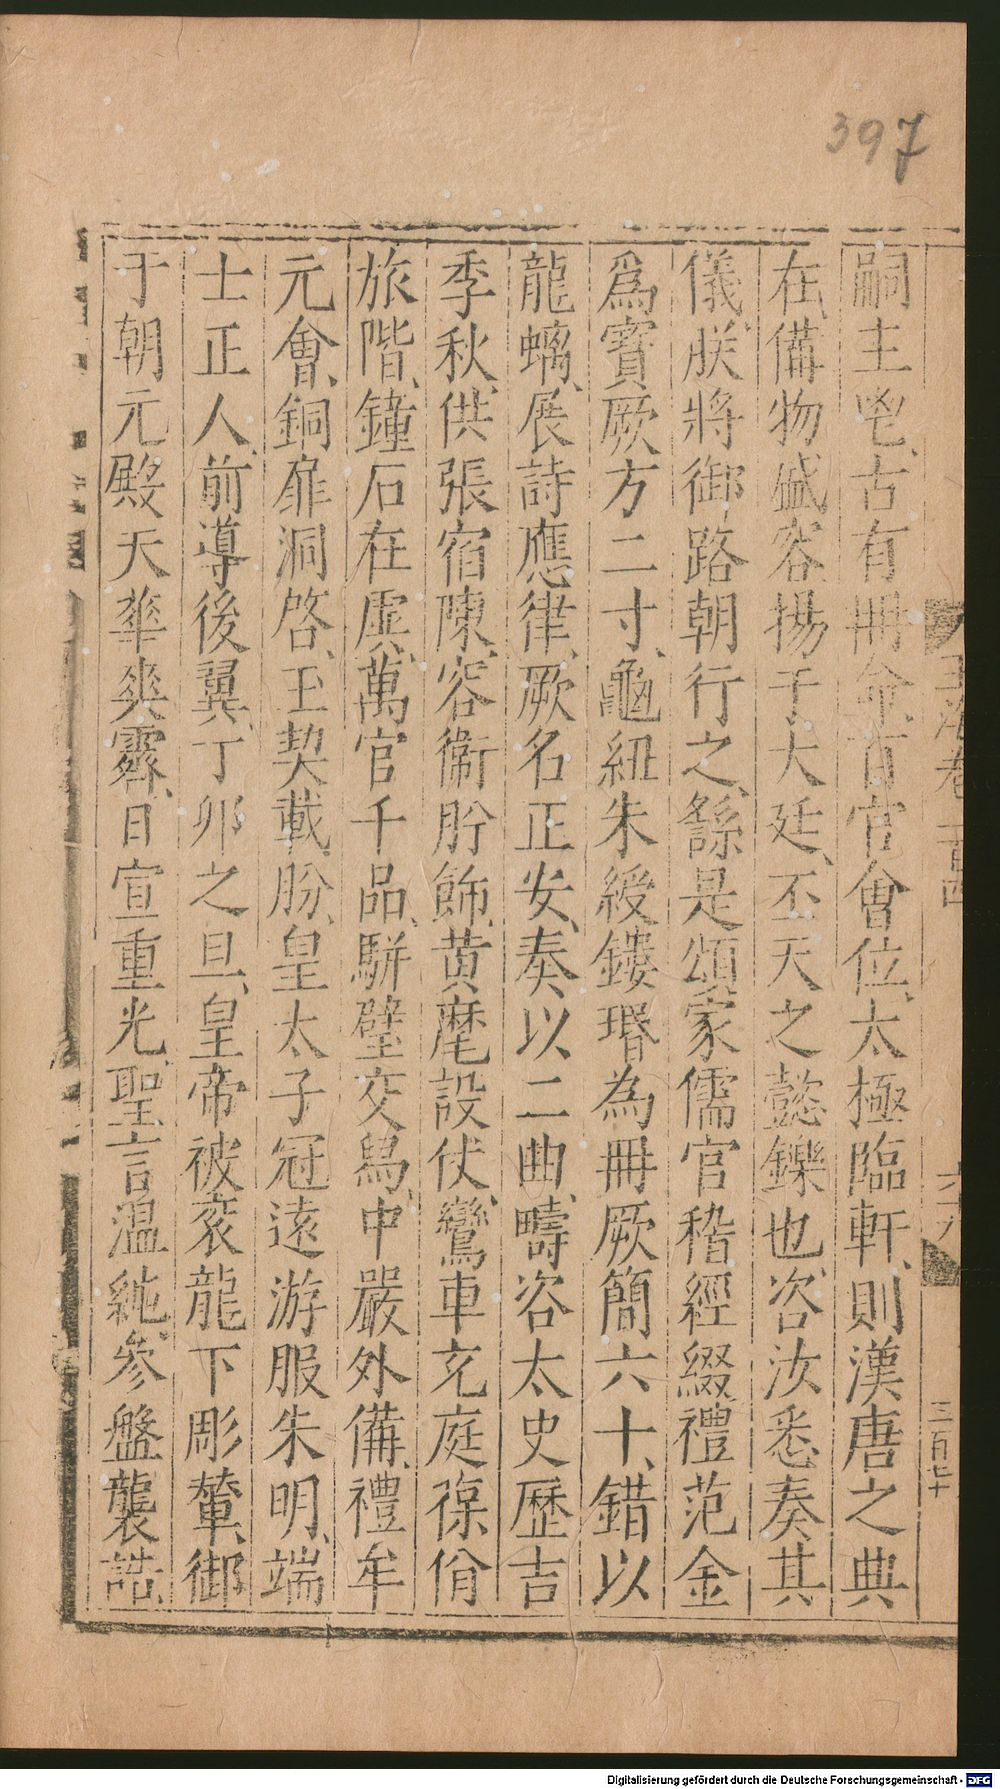 397
嗣主鬯、古有冊命、百官會位、太極臨軒、則漢唐之典
在、備物盛容、揚于大廷、丕天之懿鑠也、咨汝悉奏其
儀、朕將御路朝行之、繇是頌家儒官稽經綴禮、范金
爲寶、厥方二寸、龜紐朱綬、鏤瑉為冊、厥簡六十、錯以
龍螭、展詩應律、厥名正安、奏以二曲、疇咨太史、歷吉
季秋、供張宿陳、容衞肸飾、黄麾設仗、鸞車充庭、葆佾
旅階、鐘石在虡、萬官千品、駢璧交舄、中嚴外備、禮牟
元會、銅扉洞啓、玉契載肦、皇太子冠遠游服朱明、端
士正人、前導後翼、丁卯之旦、皇帝被衮龍下彫輦、御
于朝元殿、天華爽霽、日宣重光、聖言温純、參盤襲誥、
玉海卷一百四
六十九
三百七十
Digitalisierung gefördert durch die Deutsche Forschungsgemeinschaft - DFG